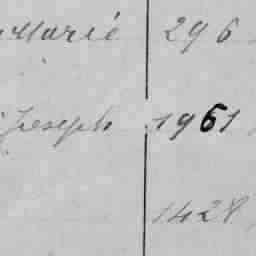 Marie 296
Joseph 1961
1428